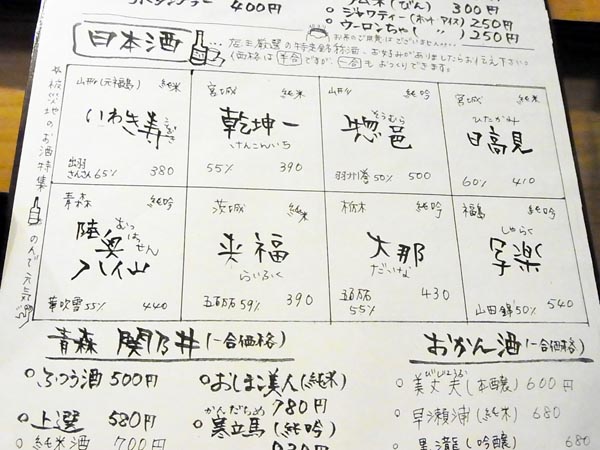 400円
(びん) 300円
○ジャワティー(ホット・アイス) 250円
○ウーロンちゃ( 〃 ) 250円
日本酒
お茶のご用意はございません…
店主厳選の特選銘柄酒。お好みがありましたらお伝え下さい。
(価格は半合ですが、一合もおつくりできます。
*被災地のお酒特集
のんで元気
山形(元福島) 純米
いわき寿
ことぶき
出羽さんさん 65% 380
宮城 純米
乾坤一
けんこんいち
55% 390
山形 純吟
そうむら
惣邑
羽州誉 50% 500
宮城 純米
ひたかみ
日高見
60% 410
青森 純吟
むつ
陸奥
はっせん
八仙
華吹雪 55% 440
茨城 純米
来福
らいふく
五百万石 59% 390
栃木 純吟
大那
だいな
五百万石 55% 430
福島 純吟
しゃらく
写楽
山田錦 50% 540
青森 関乃井 (一合価格)
○ふつう酒 500円
○上選 580円
○純米酒 700円
○おしまこ美人(純米)
780円
かんだちめ
○寒立馬(純吟)
930円
おかん酒(一合価格)
びじょうふ
○美丈夫(本醸) 600円
○早瀬浦(純米) 680
○黒瀧(吟醸) 680